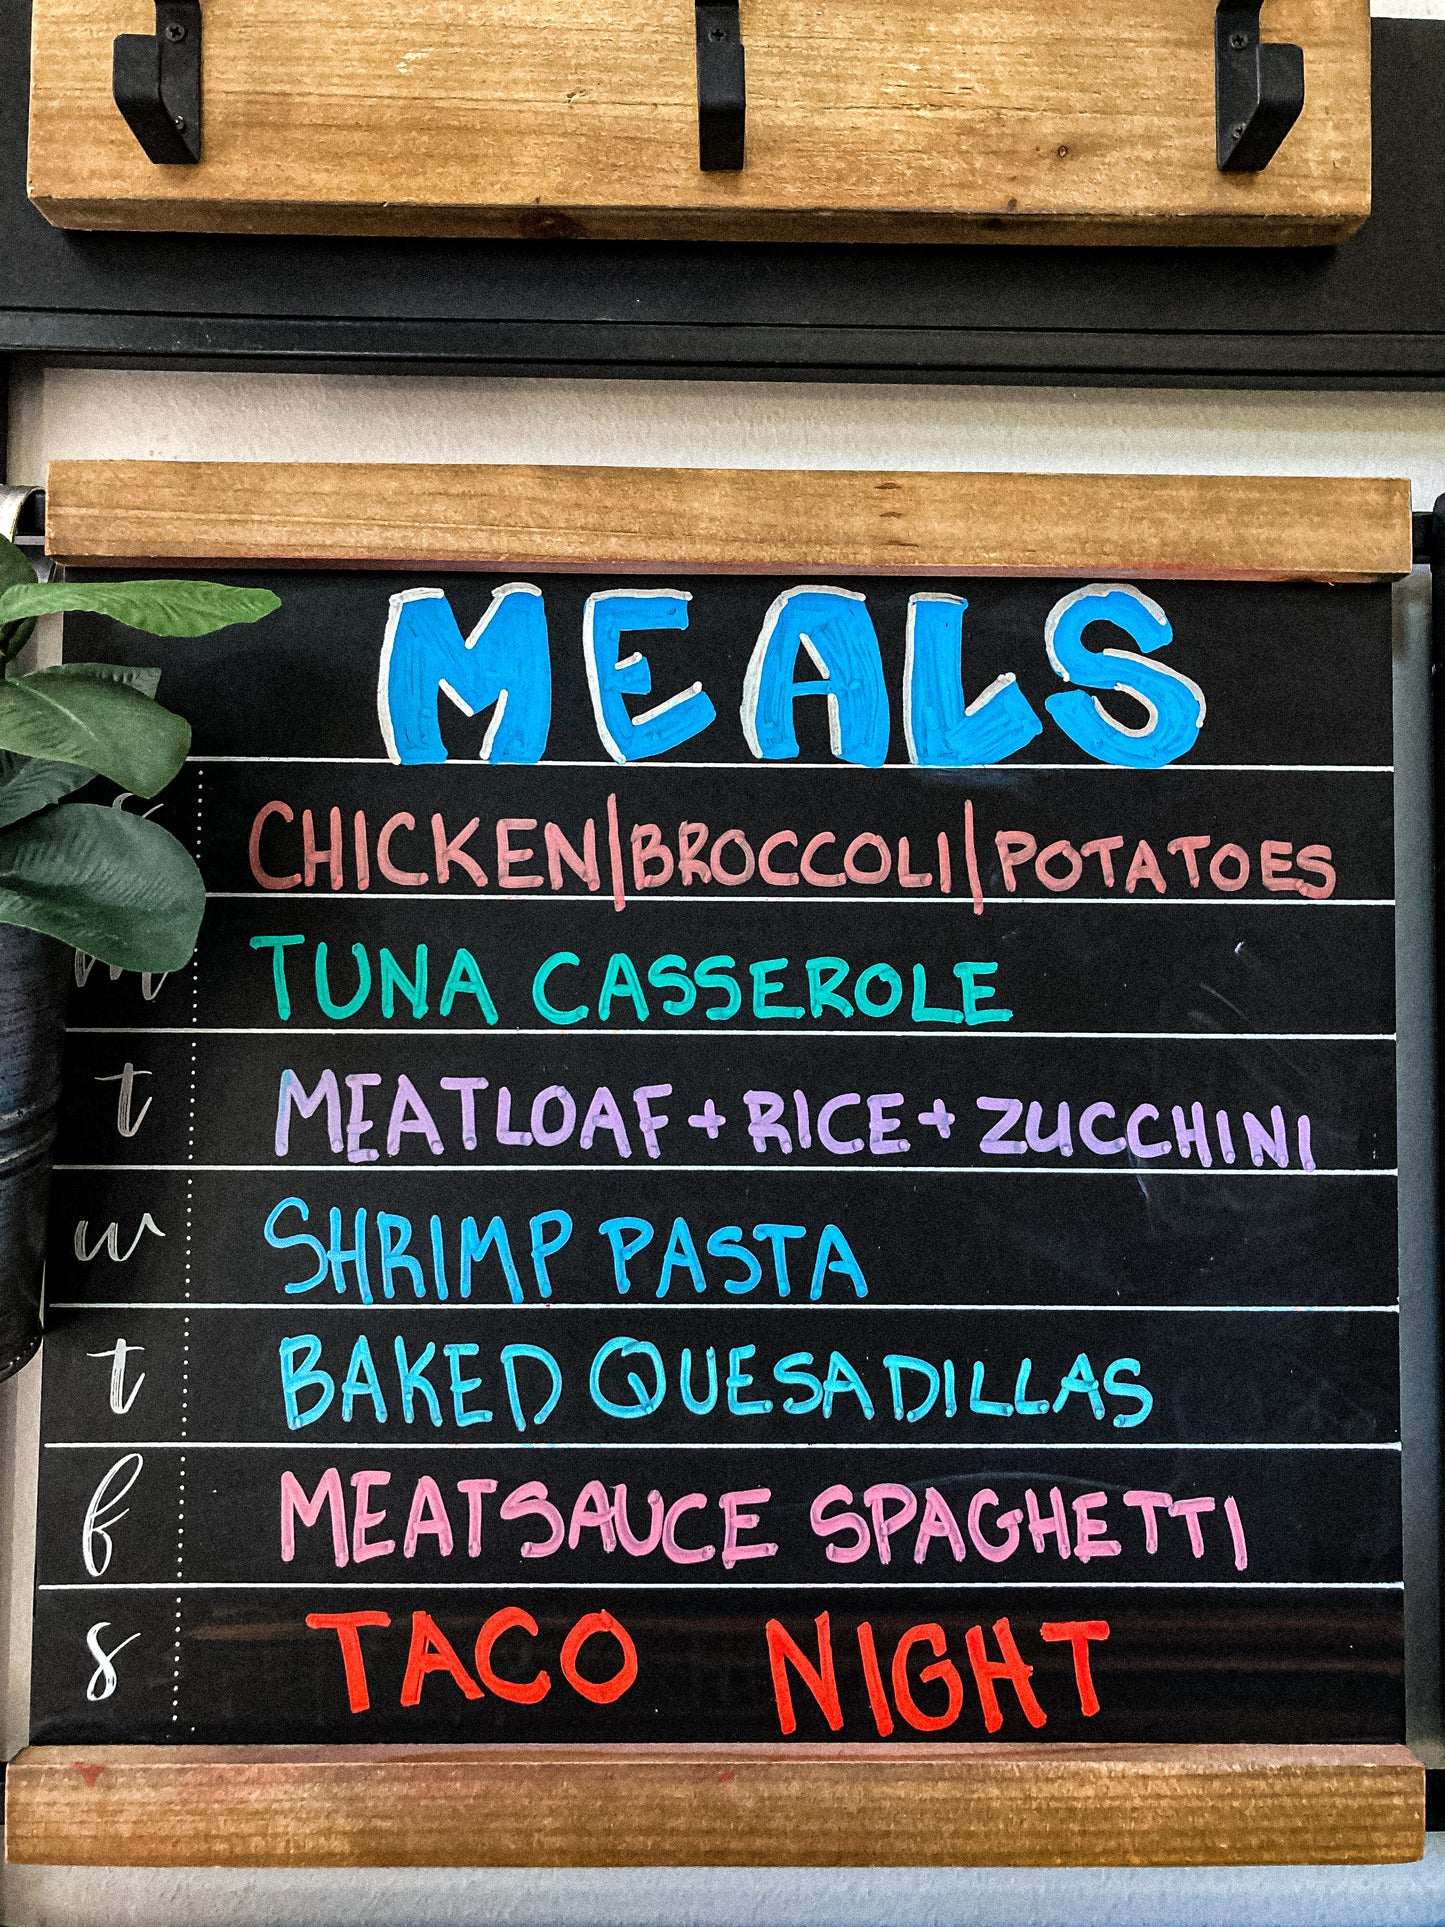 MEALS
CHICKEN|BROCCOLI|POTATOES
m TUNA CASSEROLE
t MEATLOAF + RICE + ZUCCHINI
w SHRIMP PASTA
t BAKED QUESADILLAS
f MEATSAUCE SPAGHETTI
s TACO NIGHT